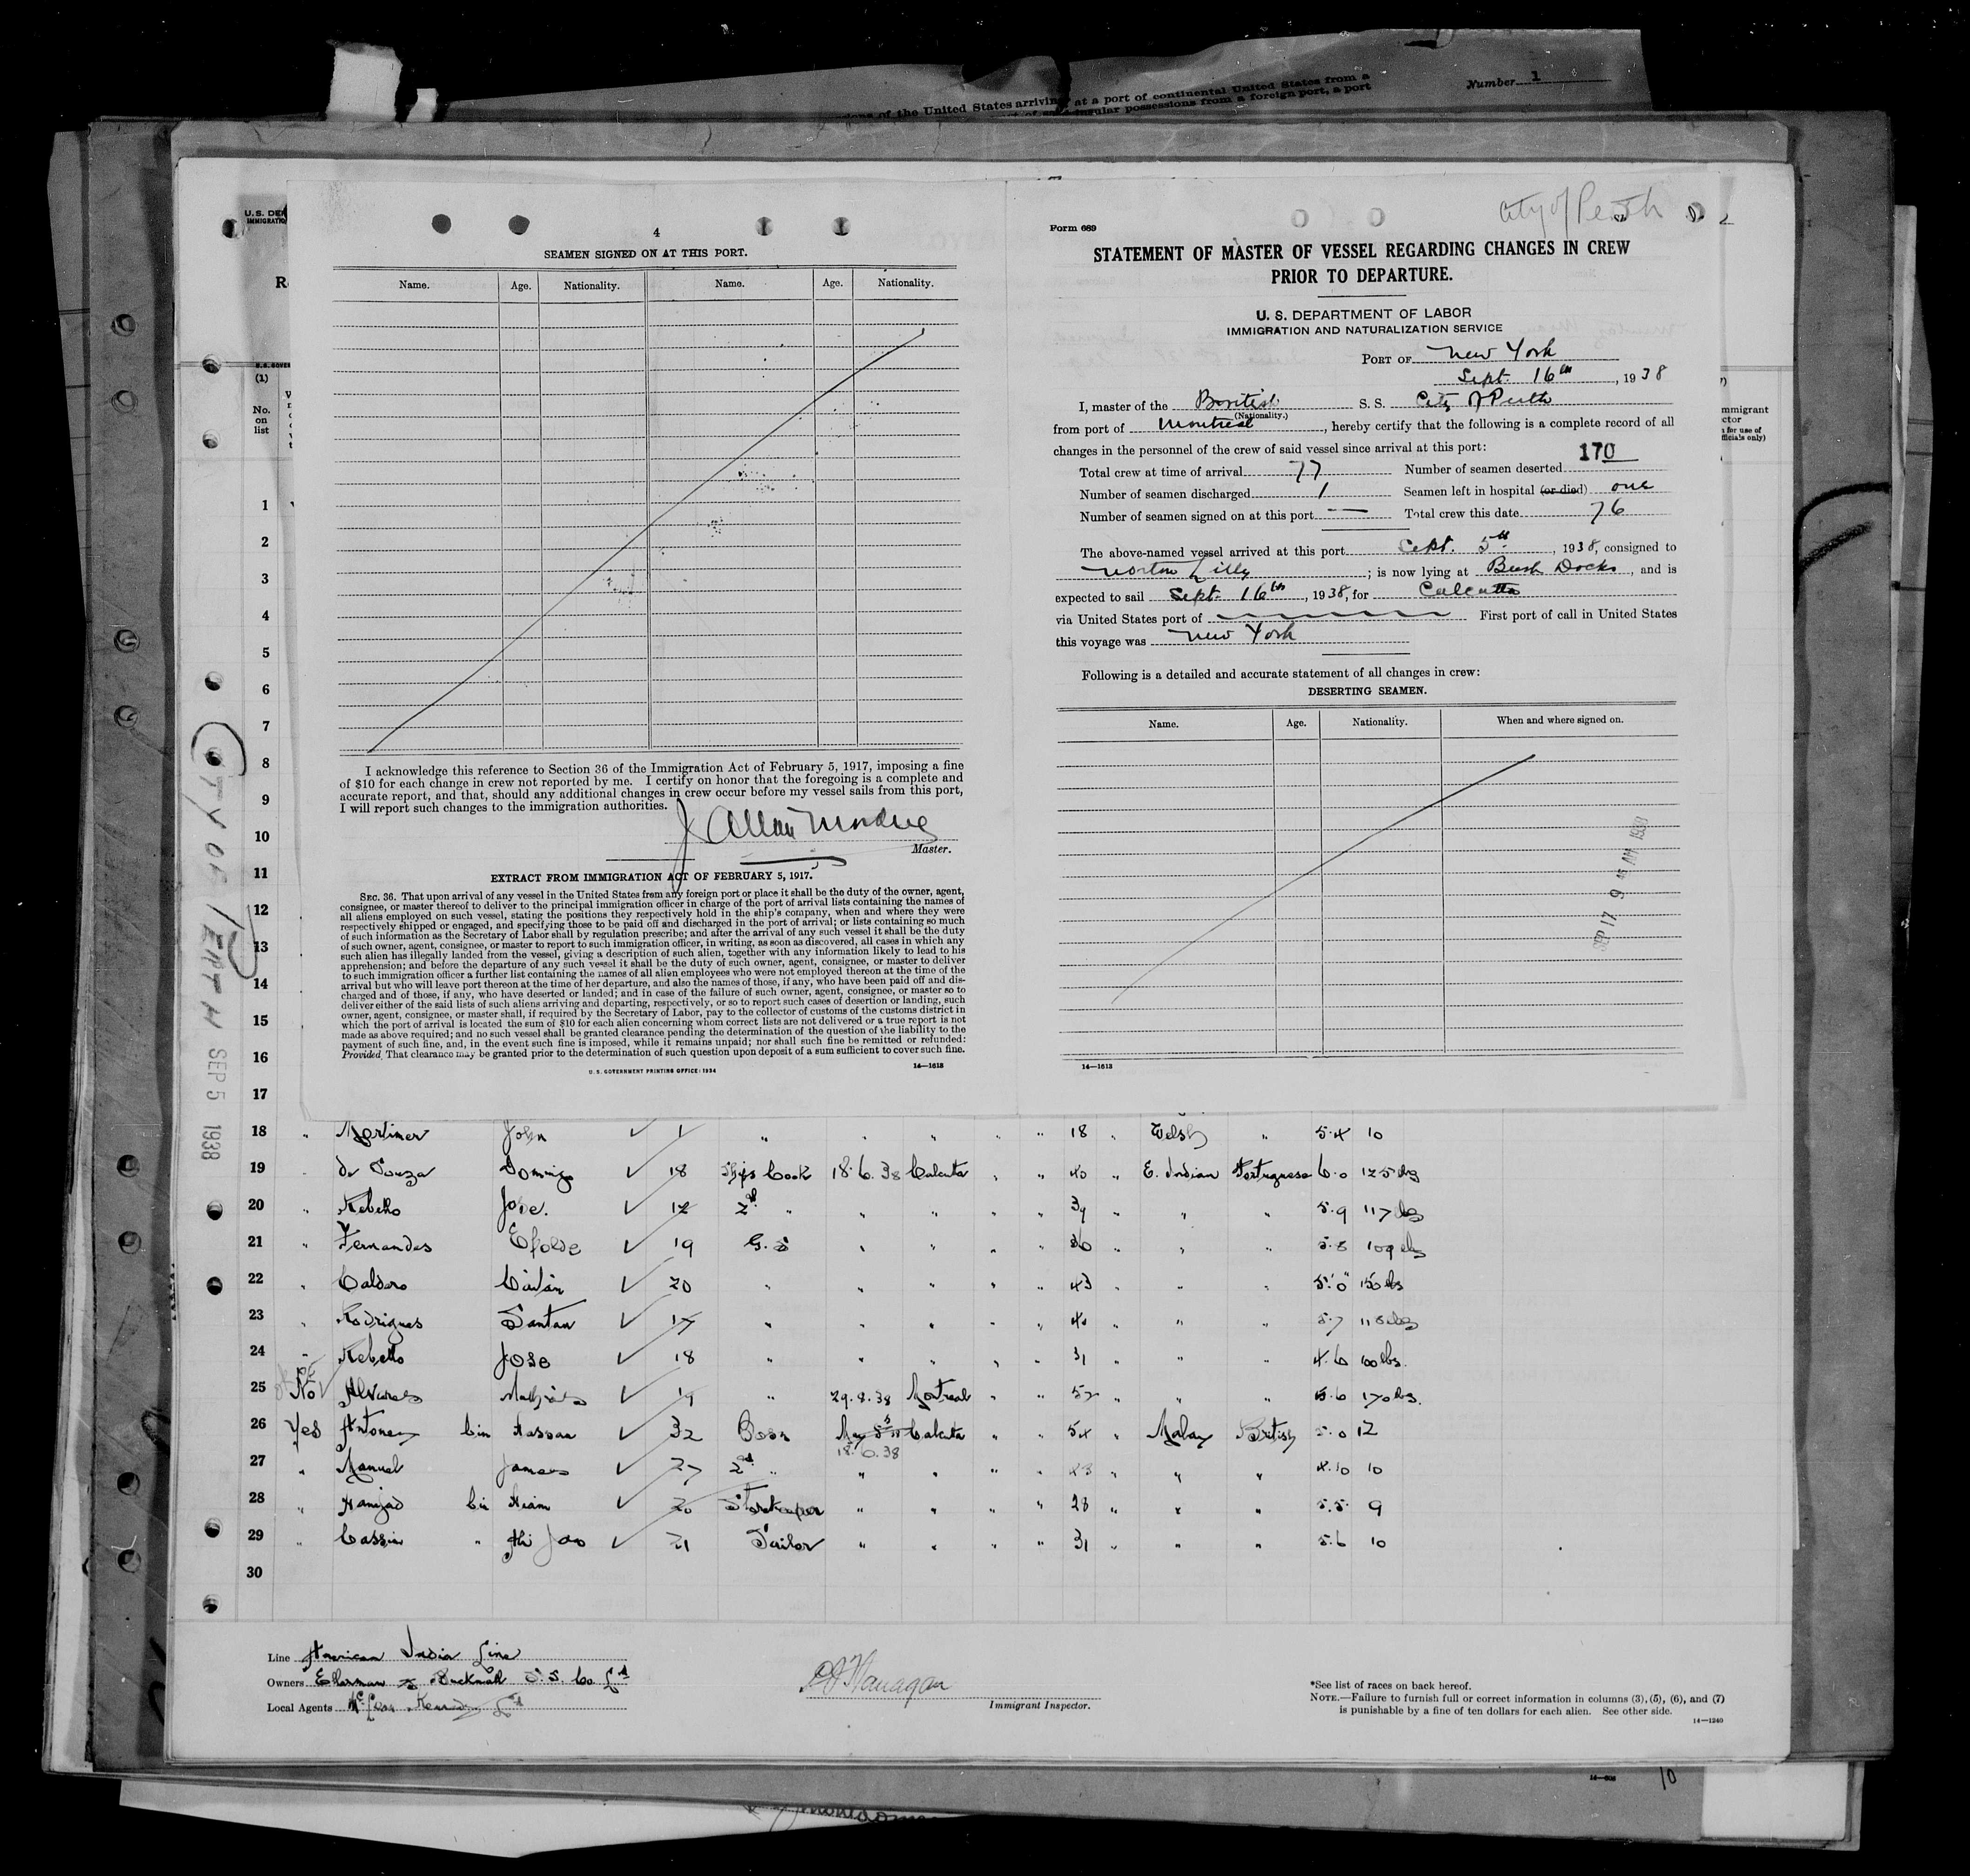 Number 1
sions of the United States arriving at a port of continental United States from a
insular possessions from a foreign port, a port
U. S. DE
IMMIGRATIO
(1)
No. on list
4
SEAMEN SIGNED ON AT THIS PORT.
Name. Age. Nationality. Name. Age. Nationality.
I acknowledge this reference to Section 36 of the Immigration Act of February 5, 1917, imposing a fine
of $10 for each change in crew not reported by me. I certify on honor that the foregoing is a complete and
accurate report, and that, should any additional changes in crew occur before my vessel sails from this port,
I will report such changes to the immigration authorities.
Master.
EXTRACT FROM IMMIGRATION ACT OF FEBRUARY 5, 1917.
SEC. 36. That upon arrival of any vessel in the United States from any foreign port or place it shall be the duty of the owner, agent,
consignee, or master thereof to deliver to the principal immigration officer in charge of the port of arrival lists containing the names of
all aliens employed on such vessel, stating the positions they respectively hold in the ship's company, when and where they were
respectively shipped or engaged, and specifying those to be paid off and discharged in the port of arrival; or lists containing so much
of such information as the Secretary of Labor shall by regulation prescribe; and after the arrival of any such vessel it shall be the duty
of such owner, agent, consignee, or master to report to such immigration officer, in writing, as soon as discovered, all cases in which any
such alien has illegally landed from the vessel, giving a description of such alien, together with any information likely to lead to his
apprehension; and before the departure of any such vessel it shall be the duty of such owner, agent, consignee, or master to deliver
to such immigration officer a further list containing the names of all alien employees who were not employed thereon at the time of the
arrival but who will leave port thereon at the time of her departure, and also the names of those, if any, who have been paid off and dis-
charged and of those, if any, who have deserted or landed; and in case of the failure of such owner, agent, consignee, or master so to
deliver either of the said lists of such aliens arriving and departing, respectively, or so to report such cases of desertion or landing, such
owner, agent, consignee, or master shall, if required by the Secretary of Labor, pay to the collector of customs of the customs district in
which the port of arrival is located the sum of $10 for each alien concerning whom correct lists are not delivered or a true report is not
made as above required; and no such vessel shall be granted clearance pending the determination of the question of the liability to the
payment of such fine, and, in the event such fine is imposed, while it remains unpaid; nor shall such fine be remitted or refunded:
Provided, That clearance may be granted prior to the determination of such question upon deposit of a sum sufficient to cover such fine.
U. S. GOVERNMENT PRINTING OFFICE: 1934 14—1613
City of Perth
Form 689
STATEMENT OF MASTER OF VESSEL REGARDING CHANGES IN CREW
PRIOR TO DEPARTURE.
U. S. DEPARTMENT OF LABOR
IMMIGRATION AND NATURALIZATION SERVICE
PORT OF New York
Sept. 16th, 1938
I, master of the British S. S. City of Perth
(Nationality.)
from port of Montreal, hereby certify that the following is a complete record of all
changes in the personnel of the crew of said vessel since arrival at this port:
170
Total crew at time of arrival 77 Number of seamen deserted
Number of seamen discharged 1 Seamen left in hospital (or died) one
Number of seamen signed on at this port — Total crew this date 76
The above-named vessel arrived at this port Sept. 5th, 1938, consigned to
Norton Lilly; is now lying at Bush Docks, and is
expected to sail Sept. 16th, 1938, for Calcutta
via United States port of First port of call in United States
this voyage was New York
Following is a detailed and accurate statement of all changes in crew:
DESERTING SEAMEN.
Name. Age. Nationality. When and where signed on.
SEP 17 9 45 AM 1938
14—1613
CITY OF PERTH SEP 5 1938
1
2
3
4
5
6
7
8
9
10
11
12
13
14
15
16
17
18 " Mortimer John ✓ 1 " " " " " 18 " Welsh " 5.4 10
19 " de Souza Domingo ✓ 18 Ships Cook 18.6.38 Calcutta " " 40 " E. Indian Portuguese 6.0 125 lbs
20 " Rebello Jose. ✓ 12 2nd " " " " " 39 " " " 5.9 117 lbs
21 " Fernandes ✓ 19 G.S " " " " 36 " " " 5.8 109 lbs
22 " Caldero ✓ 20 " " " " " 43 " " " 5.0 150 lbs
23 " Rodrigues Santan ✓ 17 " " " " " 40 " " " 5.7 118 lbs
24 " Rebello Jose ✓ 18 " " " " " 31 " " " 4.6 100 lbs.
25 No Alvares ✓ 19 " 29.8.38 Montreal " " 52 " " " 5.6 170 lbs.
26 Yes Antoney bin Hassan ✓ 32 Bosn May 5th Calcutta " " 54 " Malay British 5.0 12
18.6.38
27 " Manuel James ✓ 27 2nd " " " " " 43 " " " 4.10 10
28 " bin ✓ 20 Storekeeper " " " " 28 " " " 5.5 9
29 " Cassim " ✓ 21 Sailor " " " " 31 " " " 5.6 10
30
Line American India Line
Owners Ellerman & Bucknall S.S. Co Ltd
Local Agents McLean Kennedy Ltd
Flanagan
Immigrant Inspector.
*See list of races on back hereof.
NOTE.—Failure to furnish full or correct information in columns (3), (5), (6), and (7)
is punishable by a fine of ten dollars for each alien. See other side.
14—1240
10